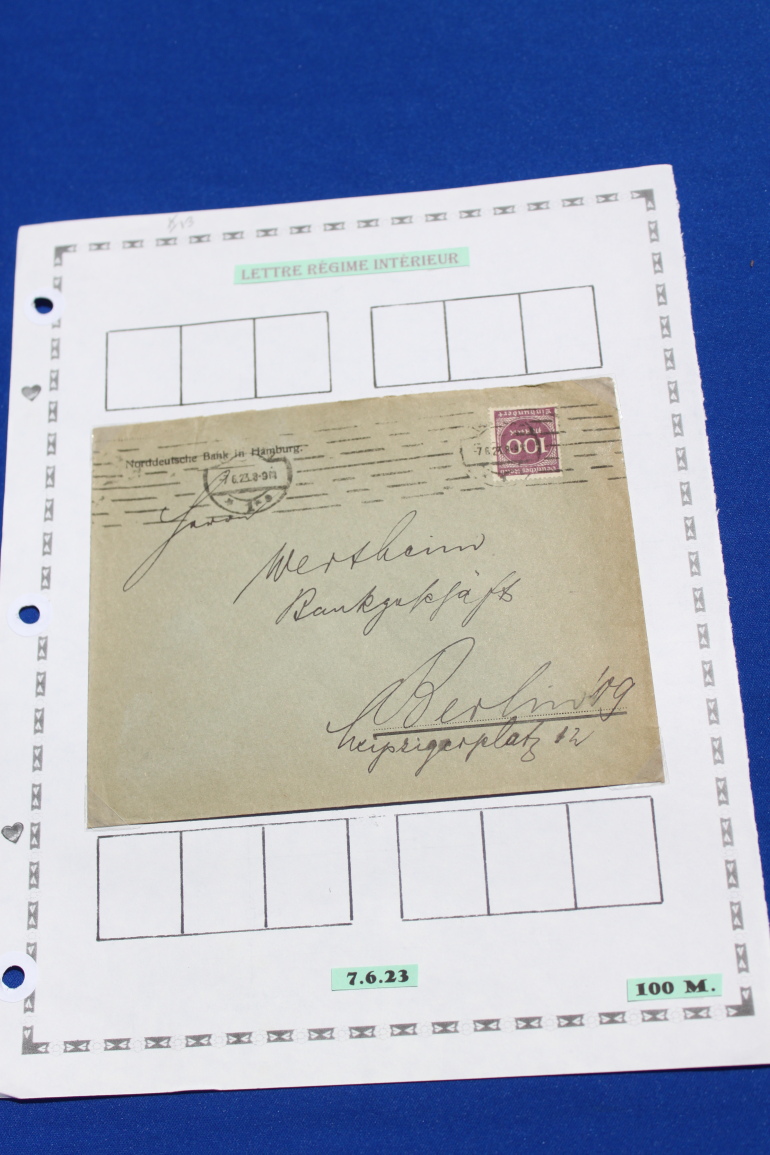 LETTRE RÉGIME INTÉRIEUR
Norddeutsche Bank in Hamburg.
7.6.23.8-9N
7.6.23.8-9N
Einhundert
Mark
100
Herrn
Wertheim
Bankgeschäft
Berlin W9
Leipzigerplatz 12
7.6.23
100 M.